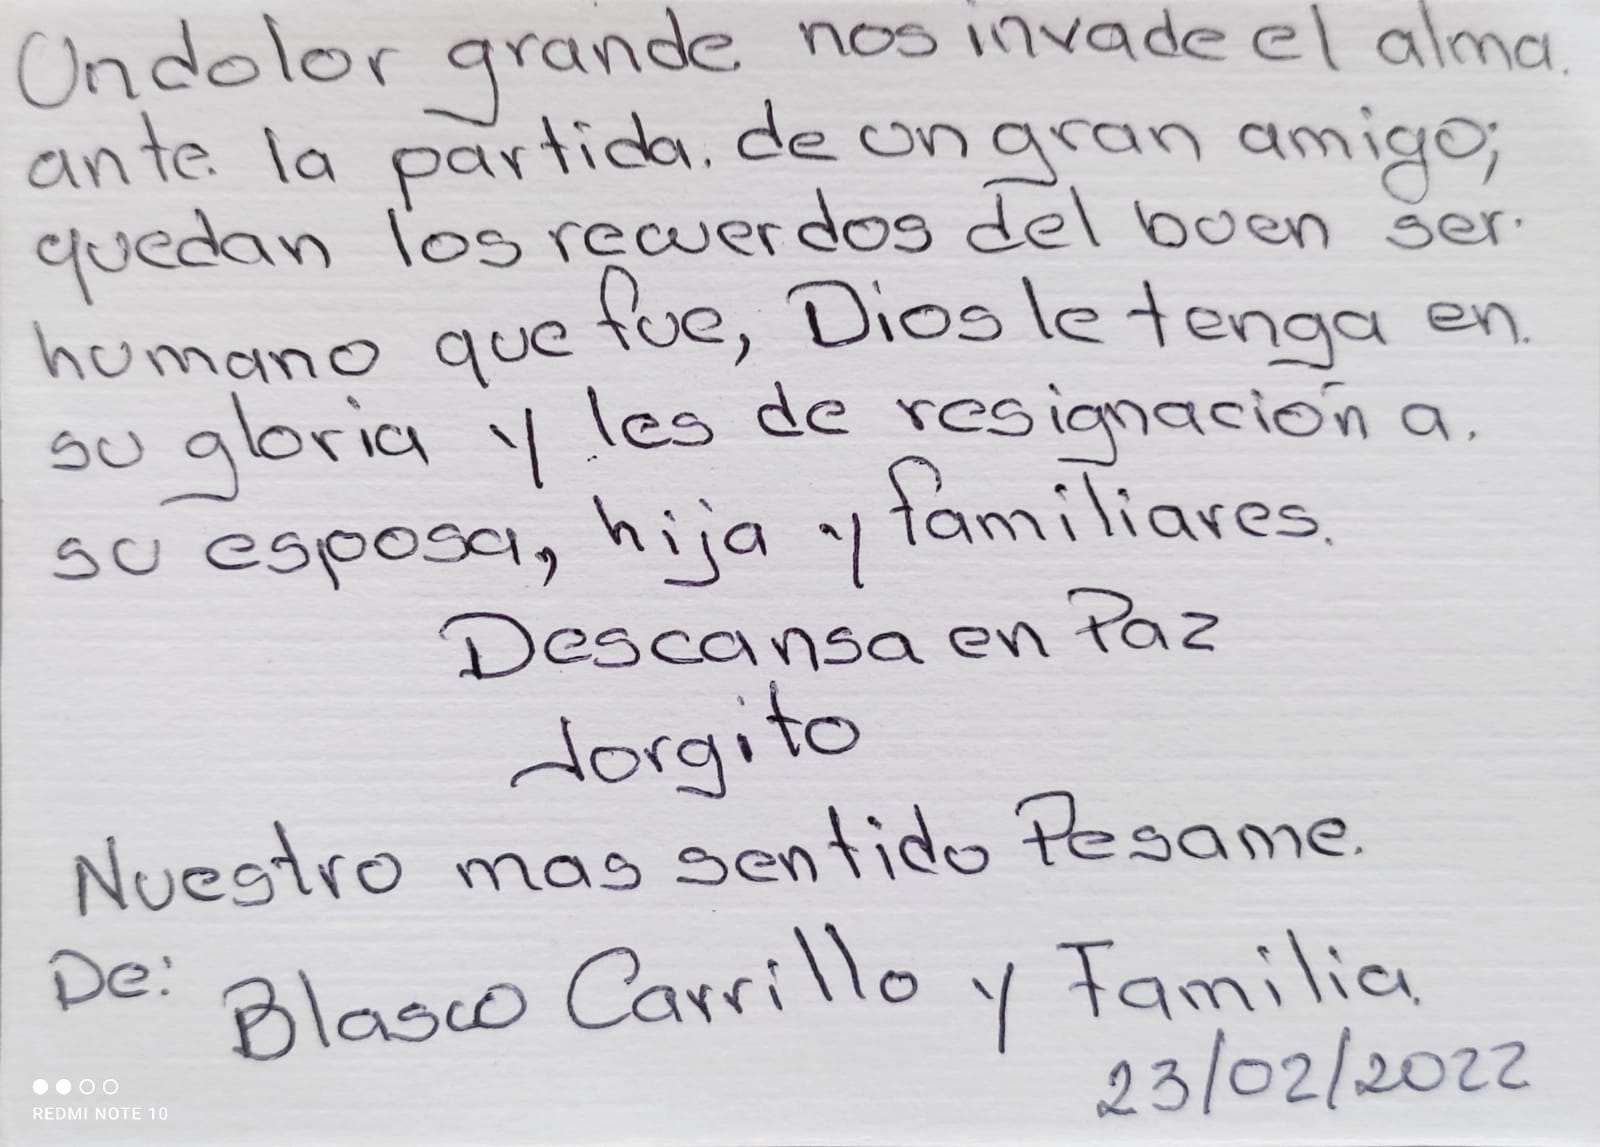 Un dolor grande nos invade el alma.
ante la partida. de un gran amigo;
quedan los recuerdos del buen ser.
humano que fue, Dios le tenga en.
su gloria y les de resignación a.
su esposa, hija y familiares.
Descansa en Paz
Jorgito
Nuestro mas sentido Pesame.
De: Blasco Carrillo y Familia.
23/02/2022
REDMI NOTE 10